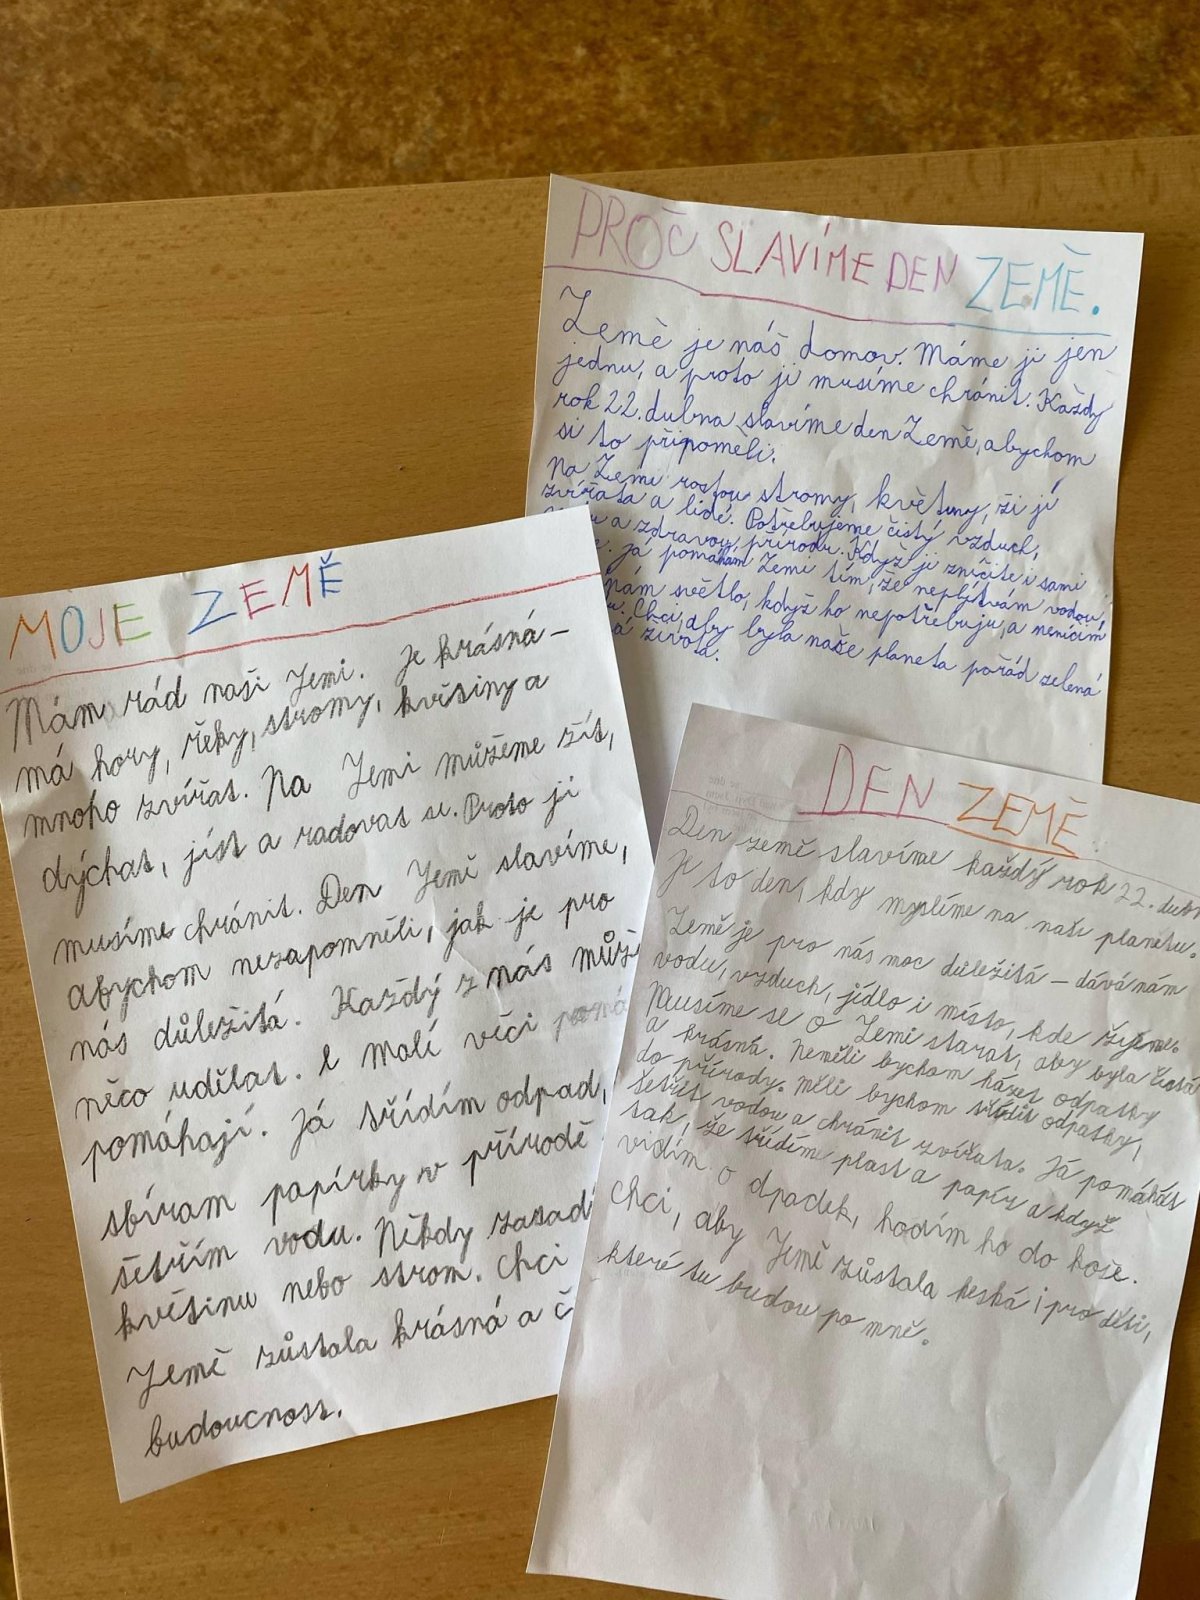 PROČ SLAVÍME DEN ZEMĚ.
Země je náš domov. Máme ji jen
jednu, a proto ji musíme chránit. Každý
rok 22. dubna slavíme den Země, abychom
si to připoměli.
Na Zemi rostou stromy, květiny, ži jí
zvířata a lidé. Potřebujeme čistý vzduch,
a zdravou přírodu. Když ji zničíte i sami
já pomahám Zemi tím, že neplýtvám vodou,
světlo, když ho nepotřebuju, a neničím
Chci, aby byla naše planeta pořád zelená
života.
MOJE ZEMĚ
Mám rád naši Zemi. Je krásná –
má hory, řeky, stromy, květiny a
mnoho zvířat. Na Zemi můžeme žít,
dýchat, jíst a radovat se. Proto ji
musíme chránit. Den Země slavíme,
abychom nezapomněli, jak je pro
nás důležitá. Každý z nás může
něco udělat. I malí věci
pomáhají. Já třídím odpad,
sbíram papírky v přírodě
šetřím vodu. Někdy zasadí
květinu nebo strom. Chci
Země zůstala krásná a č
budoucnost.
DEN ZEMĚ
Den země slavíme každý rok 22. dubn
Je to den, kdy myslíme na naši planetu.
Země je pro nás moc důležitá – dává nám
vodu, vzduch, jídlo i místo, kde žijeme.
Musíme se o Zemi starat, aby byla čistá
a krásná. Neměli bychom házet odpatky
do přírody. Měli bychom třídit odpatky,
šetřit vodou a chránit zvířata. Já pomáhát
tak, že třídíme plast a papír a když
vidím o dpadek, hodím ho do koše.
Chci, aby Země zůstala heská i pro děti,
které tu budou po mně.